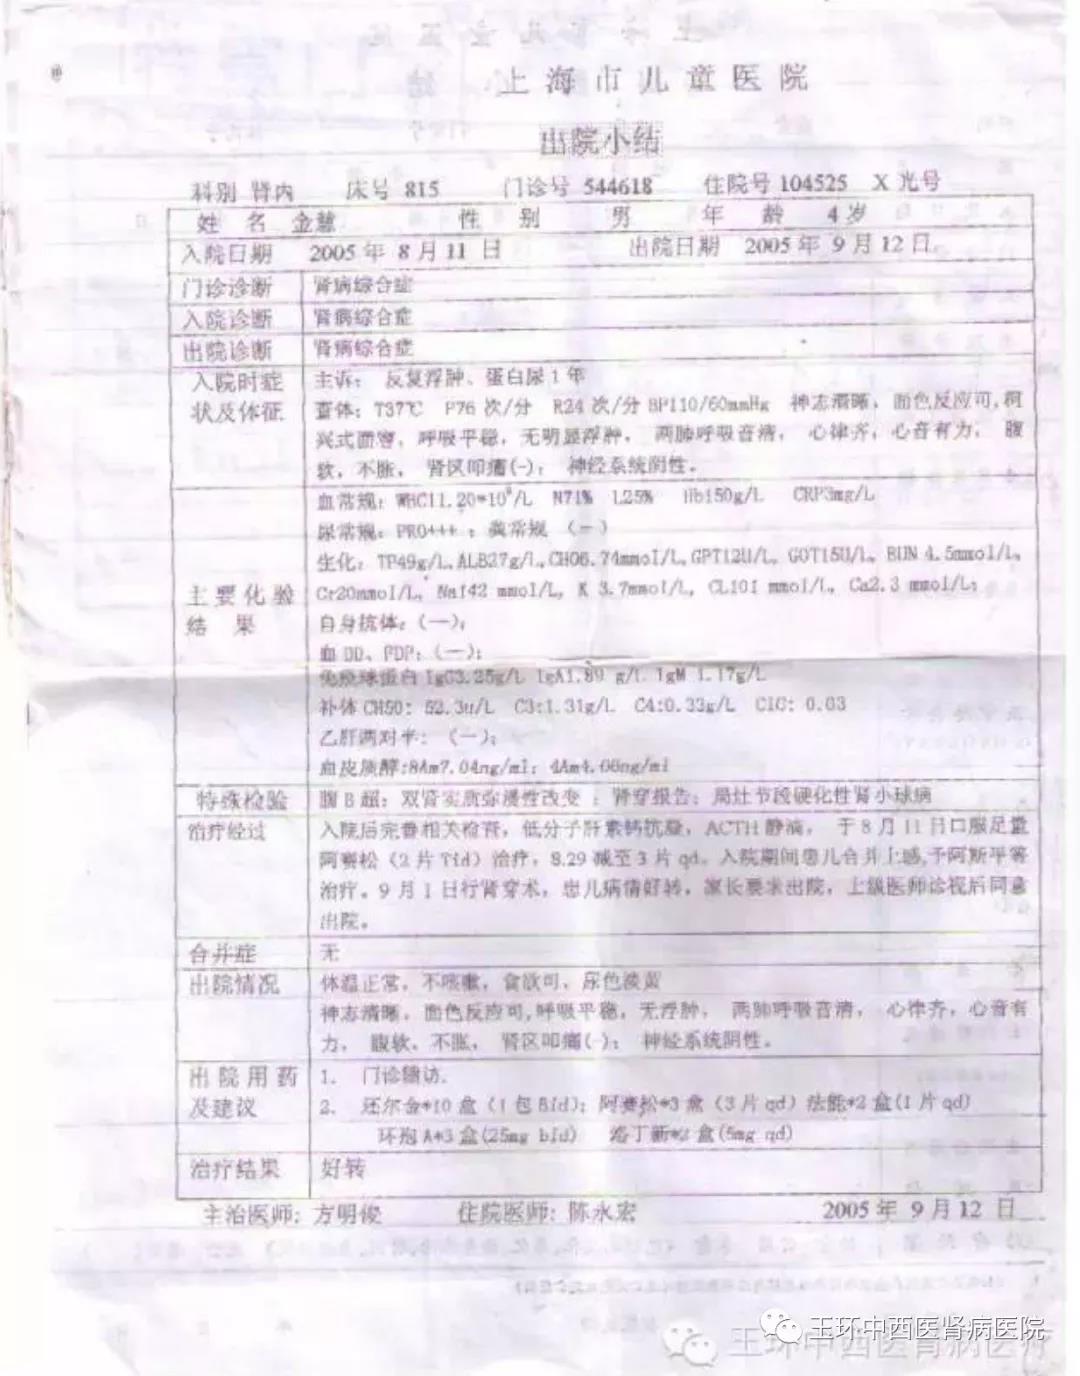 上海市儿童医院
出院小结
科别 肾内 床号 815 门诊号 544618 住院号 104525 X光号
姓 名 金慧 性 别 男 年 龄 4岁
入院日期 2005年 8月11日 出院日期 2005年 9月12日
门诊诊断 肾病综合症
入院诊断 肾病综合症
出院诊断 肾病综合症
入院时症 主诉: 反复浮肿、蛋白尿1年
状及体征 查体: T37℃ P76次/分 R24次/分 BP110/60mmHg 神志清晰, 面色反应可,柯
兴式面容, 呼吸平稳, 无明显浮肿, 两肺呼吸音清, 心律齐, 心音有力, 腹
软, 不胀, 肾区叩痛(-); 神经系统阴性。
血常规: WBC11.20*10^9/L N71% L25% Hb150g/L CRP3mg/L
尿常规: PRO+++ ; 粪常规 (一)
生化: TP49g/L,ALB27g/L,CHO6.74mmol/L,GPT12U/L, GOT15U/L, BUN 4.5mmol/L,
主要化验 Cr20mmol/L, Na142 mmol/L, K 3.7mmol/L, CL101 mmol/L, Ca2.3 mmol/L;
结 果 自身抗体: (一);
血DD、FDP: (一);
免疫球蛋白 IgG3.25g/L IgA1.89 g/L IgM 1.17g/L
补体CH50: 52.3u/L C3:1.31g/L C4:0.33g/L CIC: 0.03
乙肝两对半: (一);
血皮质醇:8Am7.04ng/ml; 4Am4.06ng/ml
特殊检验 腹B超: 双肾实质弥漫性改变 ; 肾穿报告: 局灶节段硬化性肾小球病
治疗经过 入院后完善相关检查, 低分子肝素钙抗凝, ACTH静滴, 于8月11日口服足量
阿赛松(2片Tid)治疗, 8.29减至3片qd。入院期间患儿合并上感,予阿斯平等
治疗。9月1日行肾穿术, 患儿病情好转, 家长要求出院, 上级医师诊视后同意
出院。
合并症 无
出院情况 体温正常, 不咳嗽, 食欲可, 尿色淡黄
神志清晰, 面色反应可,呼吸平稳, 无浮肿, 两肺呼吸音清, 心律齐, 心音有
力, 腹软, 不胀, 肾区叩痛(-); 神经系统阴性。
出院用药 1. 门诊随访.
及建议 2. 还尔金*10盒(1包Bid); 阿赛松*3盒(3片qd) 法能*2盒(1片qd)
环孢A*3盒(25mg bid) 洛丁新*2盒(5mg qd)
治疗结果 好转
主治医师: 方明俊 住院医师: 陈永宏 2005年 9月12日
玉环中西医肾病医院
玉环中西医肾病医疗